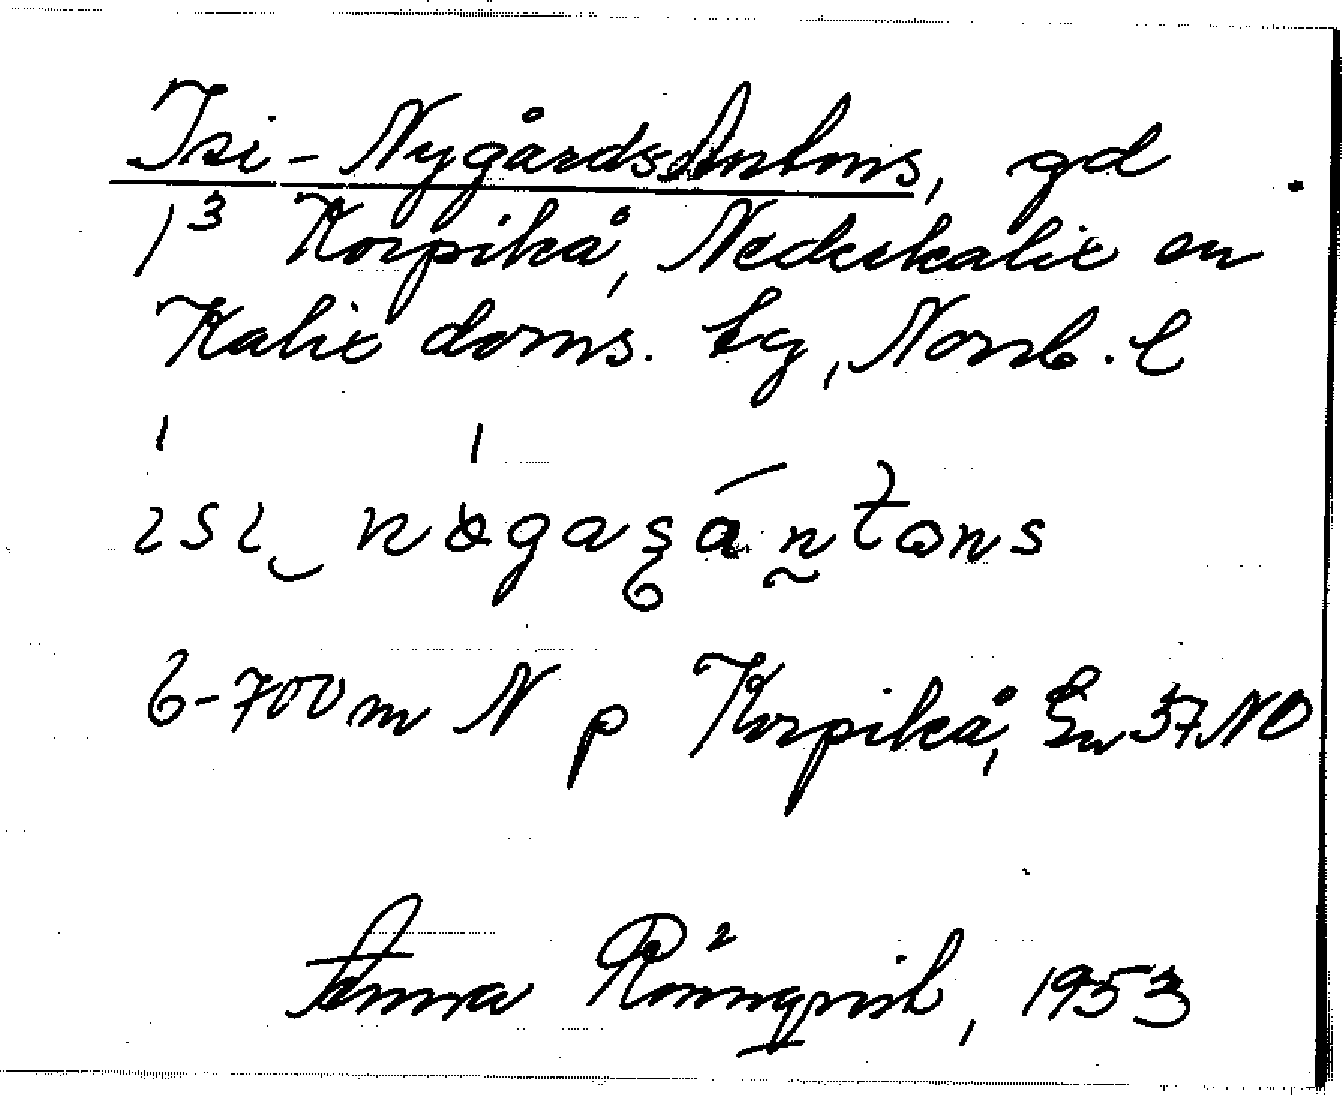 Isi-NygårdsAntons, gd
1³ Korpikå, Nederkalix sn
Kalix doms. tg, Norrb. l
ısı nøgaşántons
6-700 m N p Korpikå, Ew 37 NO
Anna Rönnqvist, 1953